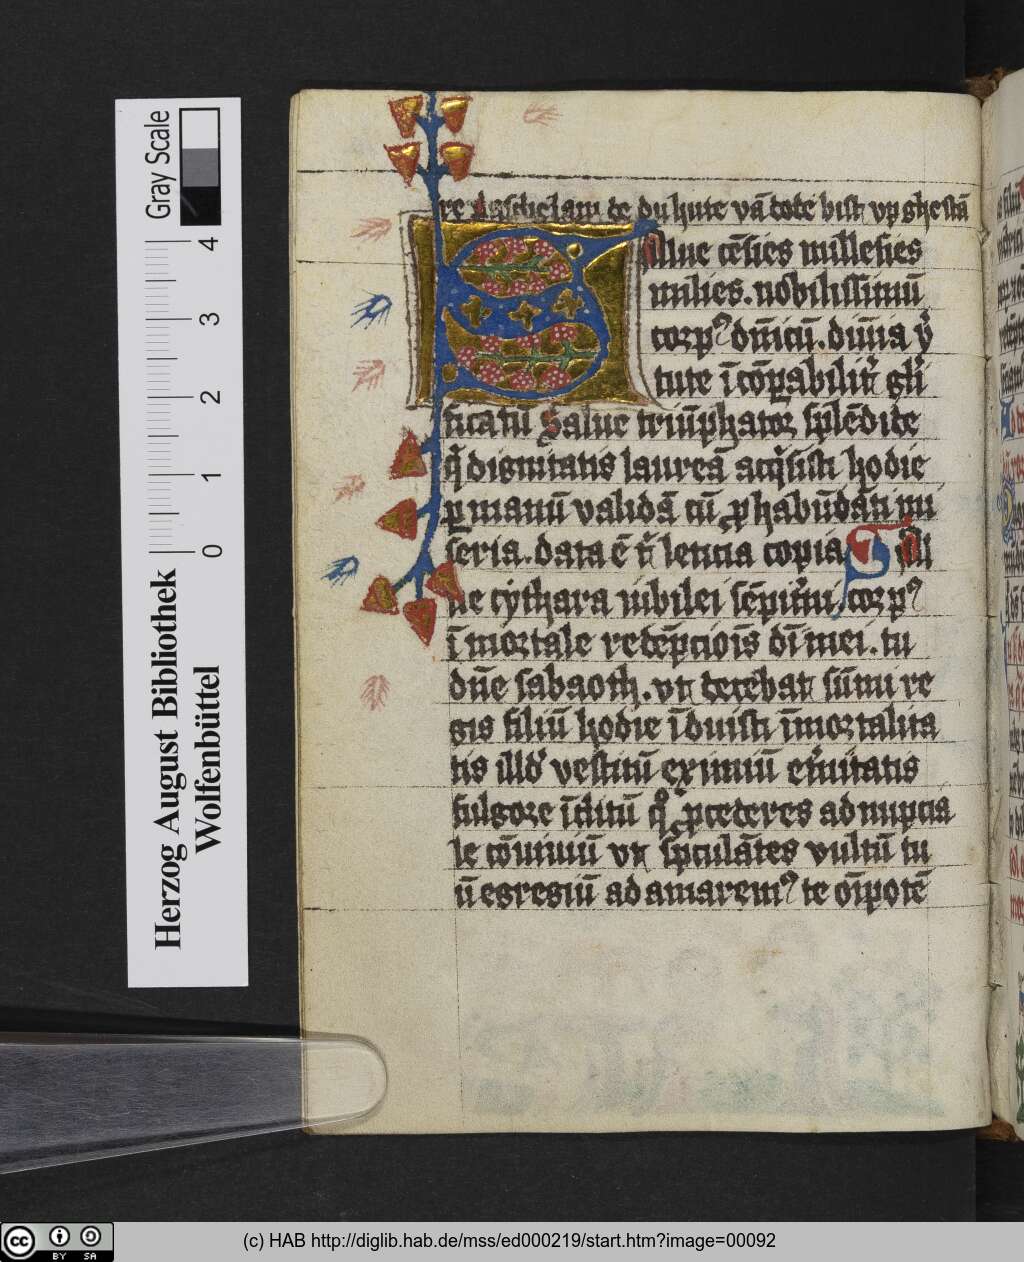 Gray Scale
4
3
2
1
0
Herzog August Bibliothek
Wolfenbüttel
re paschelam de du hute vā dode bist vp ghestā
Salue cēties millesies
milies. nobilissimū
corpꝰ dn̄icū. diuīa v̾
tute ī cōꝑabilit̾ gl̾i
ficatū Salue triūphator splēdide
q̄ dignitatis laureā acq̄sisti hodie
ꝑ manū validā cū ꝓhabūdāti mi
seria. data ē
copia Tu ill
ue cythara iubilei sēpit̾ni, corpꝰ
īmortale redēpciois dī mei. tu
dn̄e sabaoth. vn̄ decebat sūmi re
gis filiū hodie īduisti īmortalita
tis illd̾ vestitū eximiū et̾nitatis
fulgore īclitū q̊ ꝓcederes ad nupcia
le cōuiuiū vn̄ spculātes vultū tu
ū egregiū ad amaremꝰ te oīpotē
CC BY SA
(c) HAB http://diglib.hab.de/mss/ed000219/start.htm?image=00092